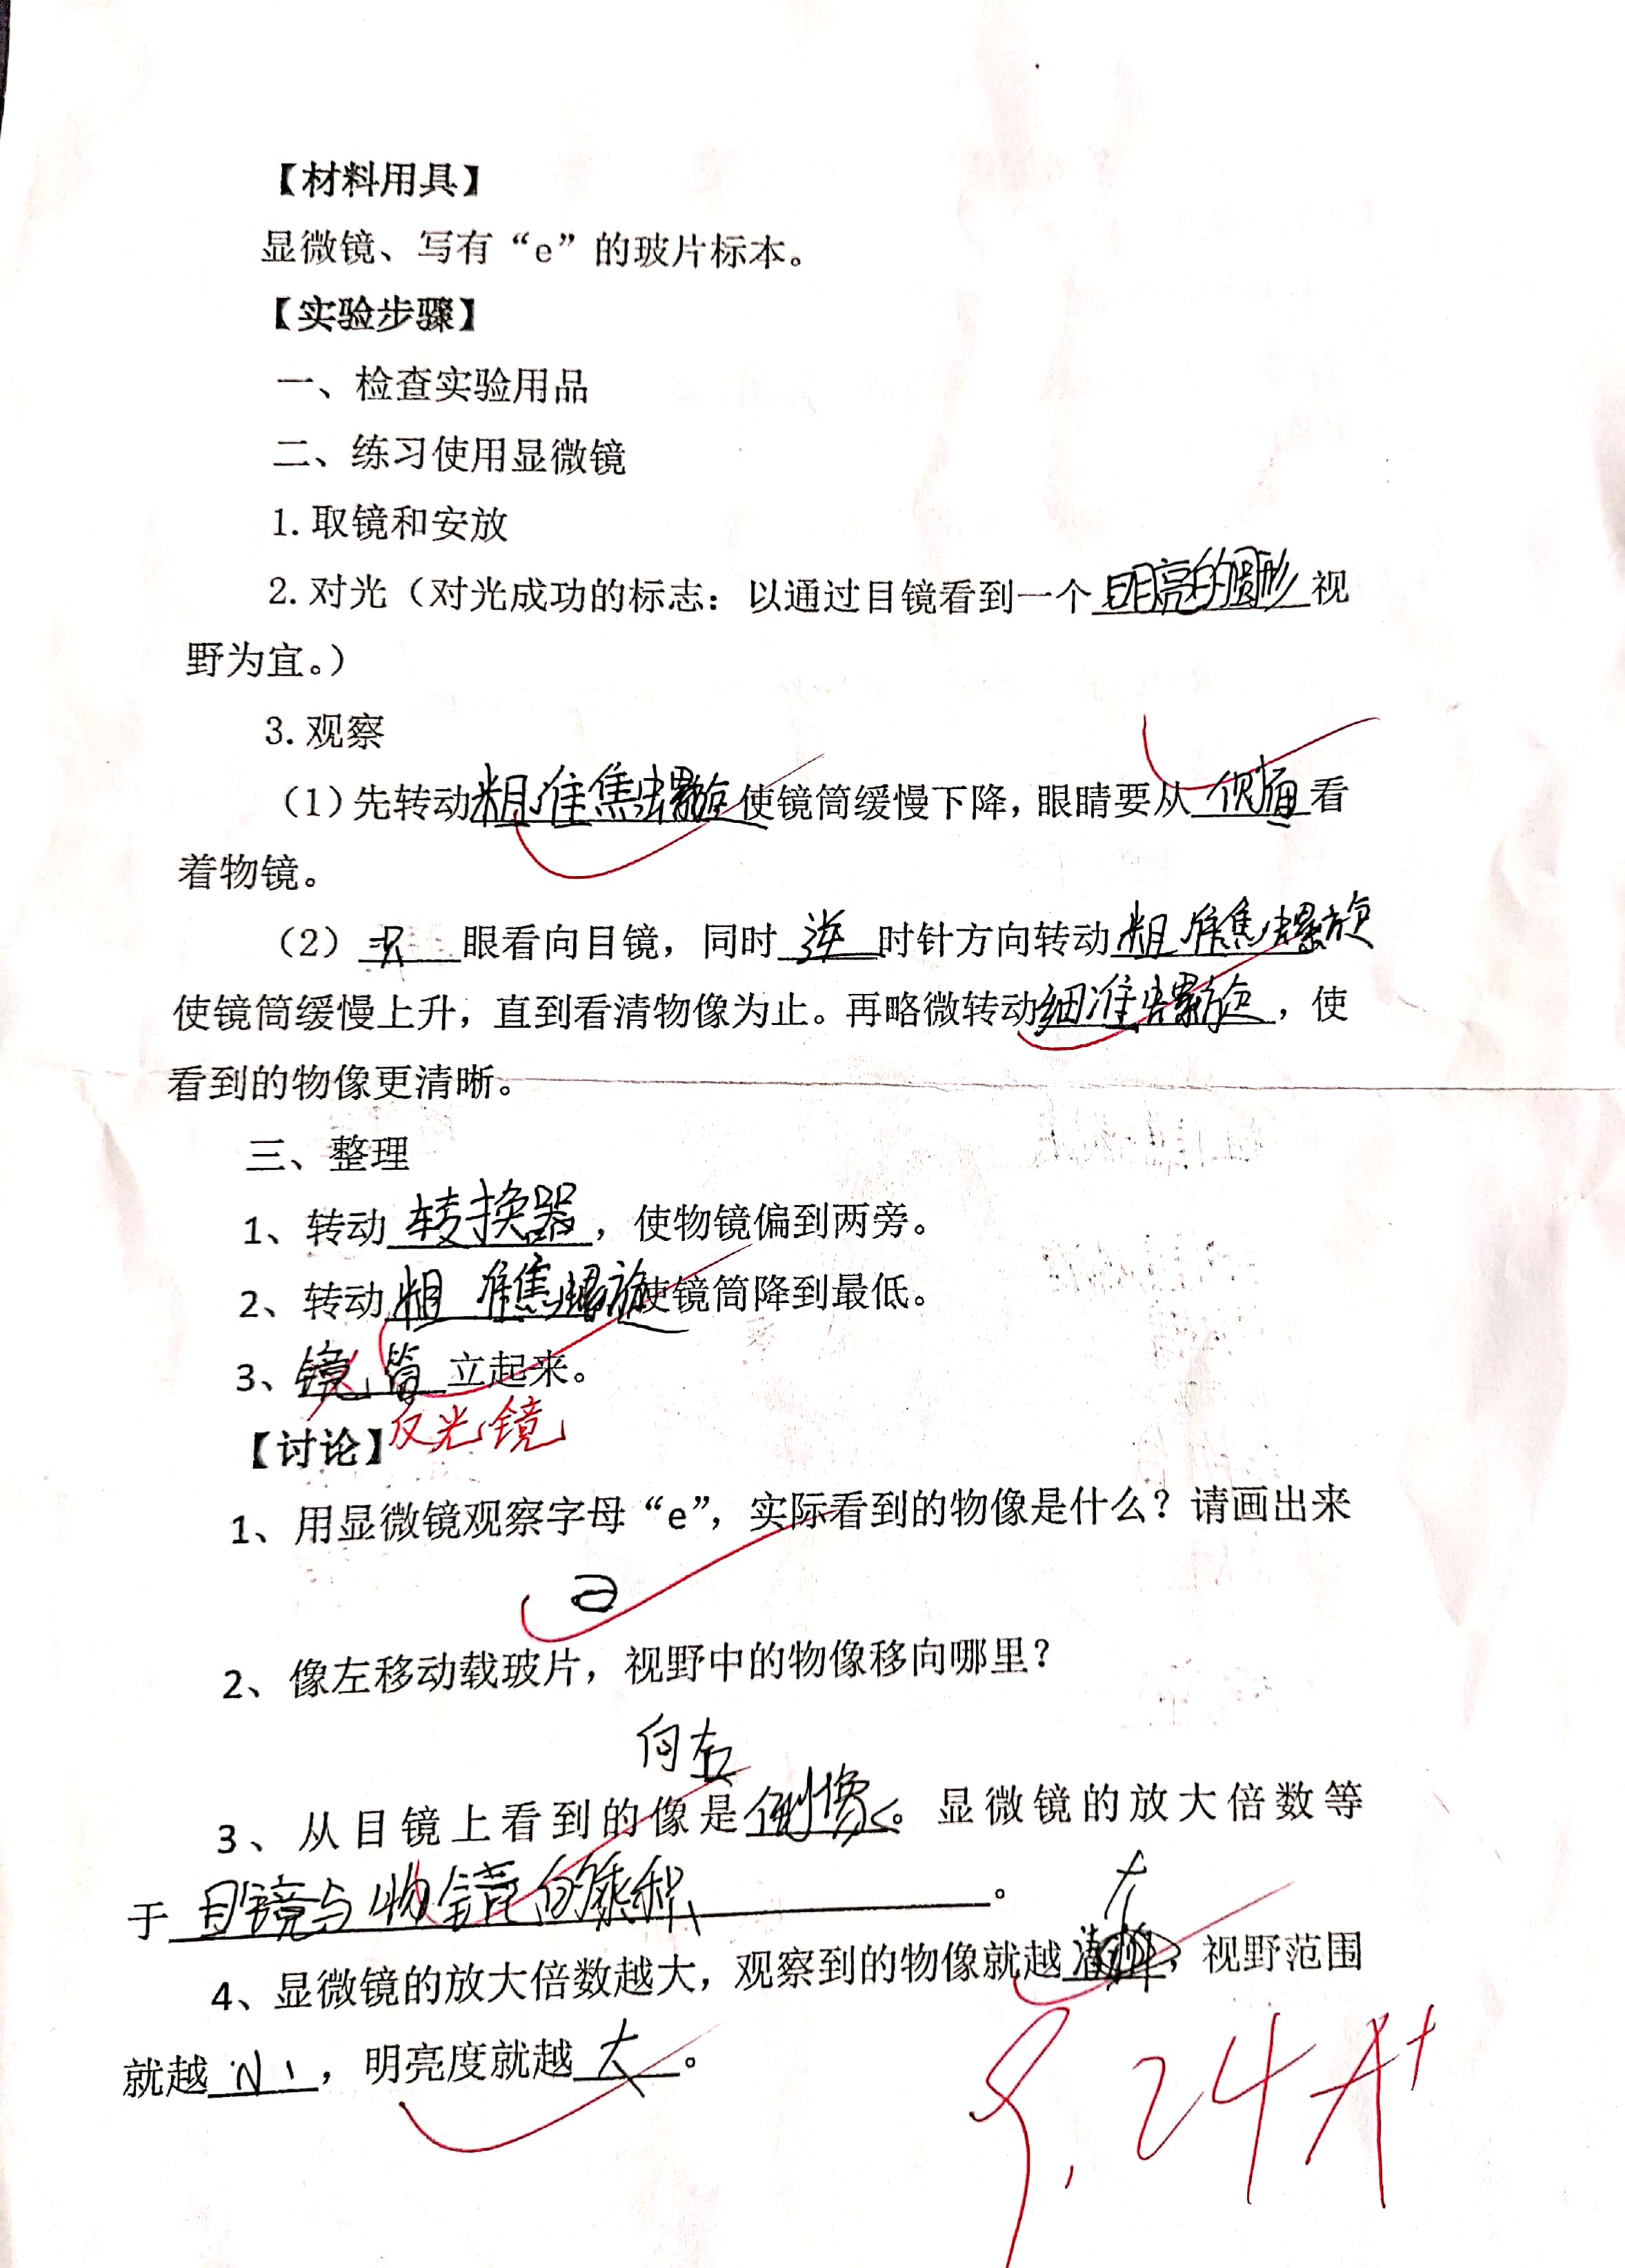 【材料用具】
显微镜、写有“e”的玻片标本。
【实验步骤】
一、检查实验用品
二、练习使用显微镜
1.取镜和安放
2.对光（对光成功的标志：以通过目镜看到一个明亮的圆形视
野为宜。）
3.观察
（1）先转动粗准焦螺旋使镜筒缓慢下降，眼睛要从侧面看
着物镜。
（2）眼看向目镜，同时逆时针方向转动粗准焦螺旋
使镜筒缓慢上升，直到看清物像为止。再略微转动细准螺旋，使
看到的物像更清晰。
三、整理
1、转动转换器，使物镜偏到两旁。
2、转动粗准焦螺旋使镜筒降到最低。
3、镜筒立起来。
反光镜
【讨论】
1、用显微镜观察字母“e”，实际看到的物像是什么？请画出来
ə
2、像左移动载玻片，视野中的物像移向哪里？
向右
3、从目镜上看到的像是倒像。显微镜的放大倍数等
于目镜与物镜的乘积。
4、显微镜的放大倍数越大，观察到的物像就越大，视野范围
就越小，明亮度就越大。
9.24 A+